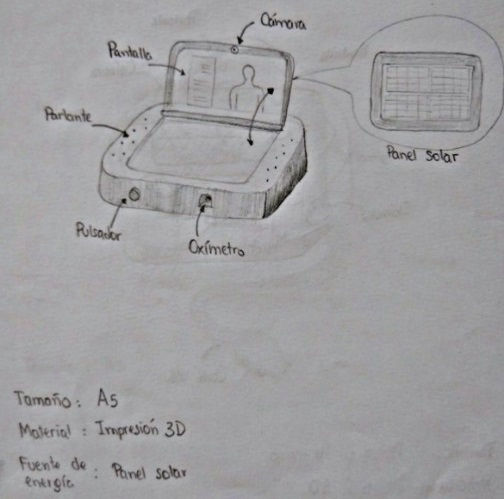 Cámara
Pantalla
Parlante
Panel solar
Pulsador
Oxímetro
Tamaño : A5
Material : Impresión 3D
Fuente de
energía : Panel solar